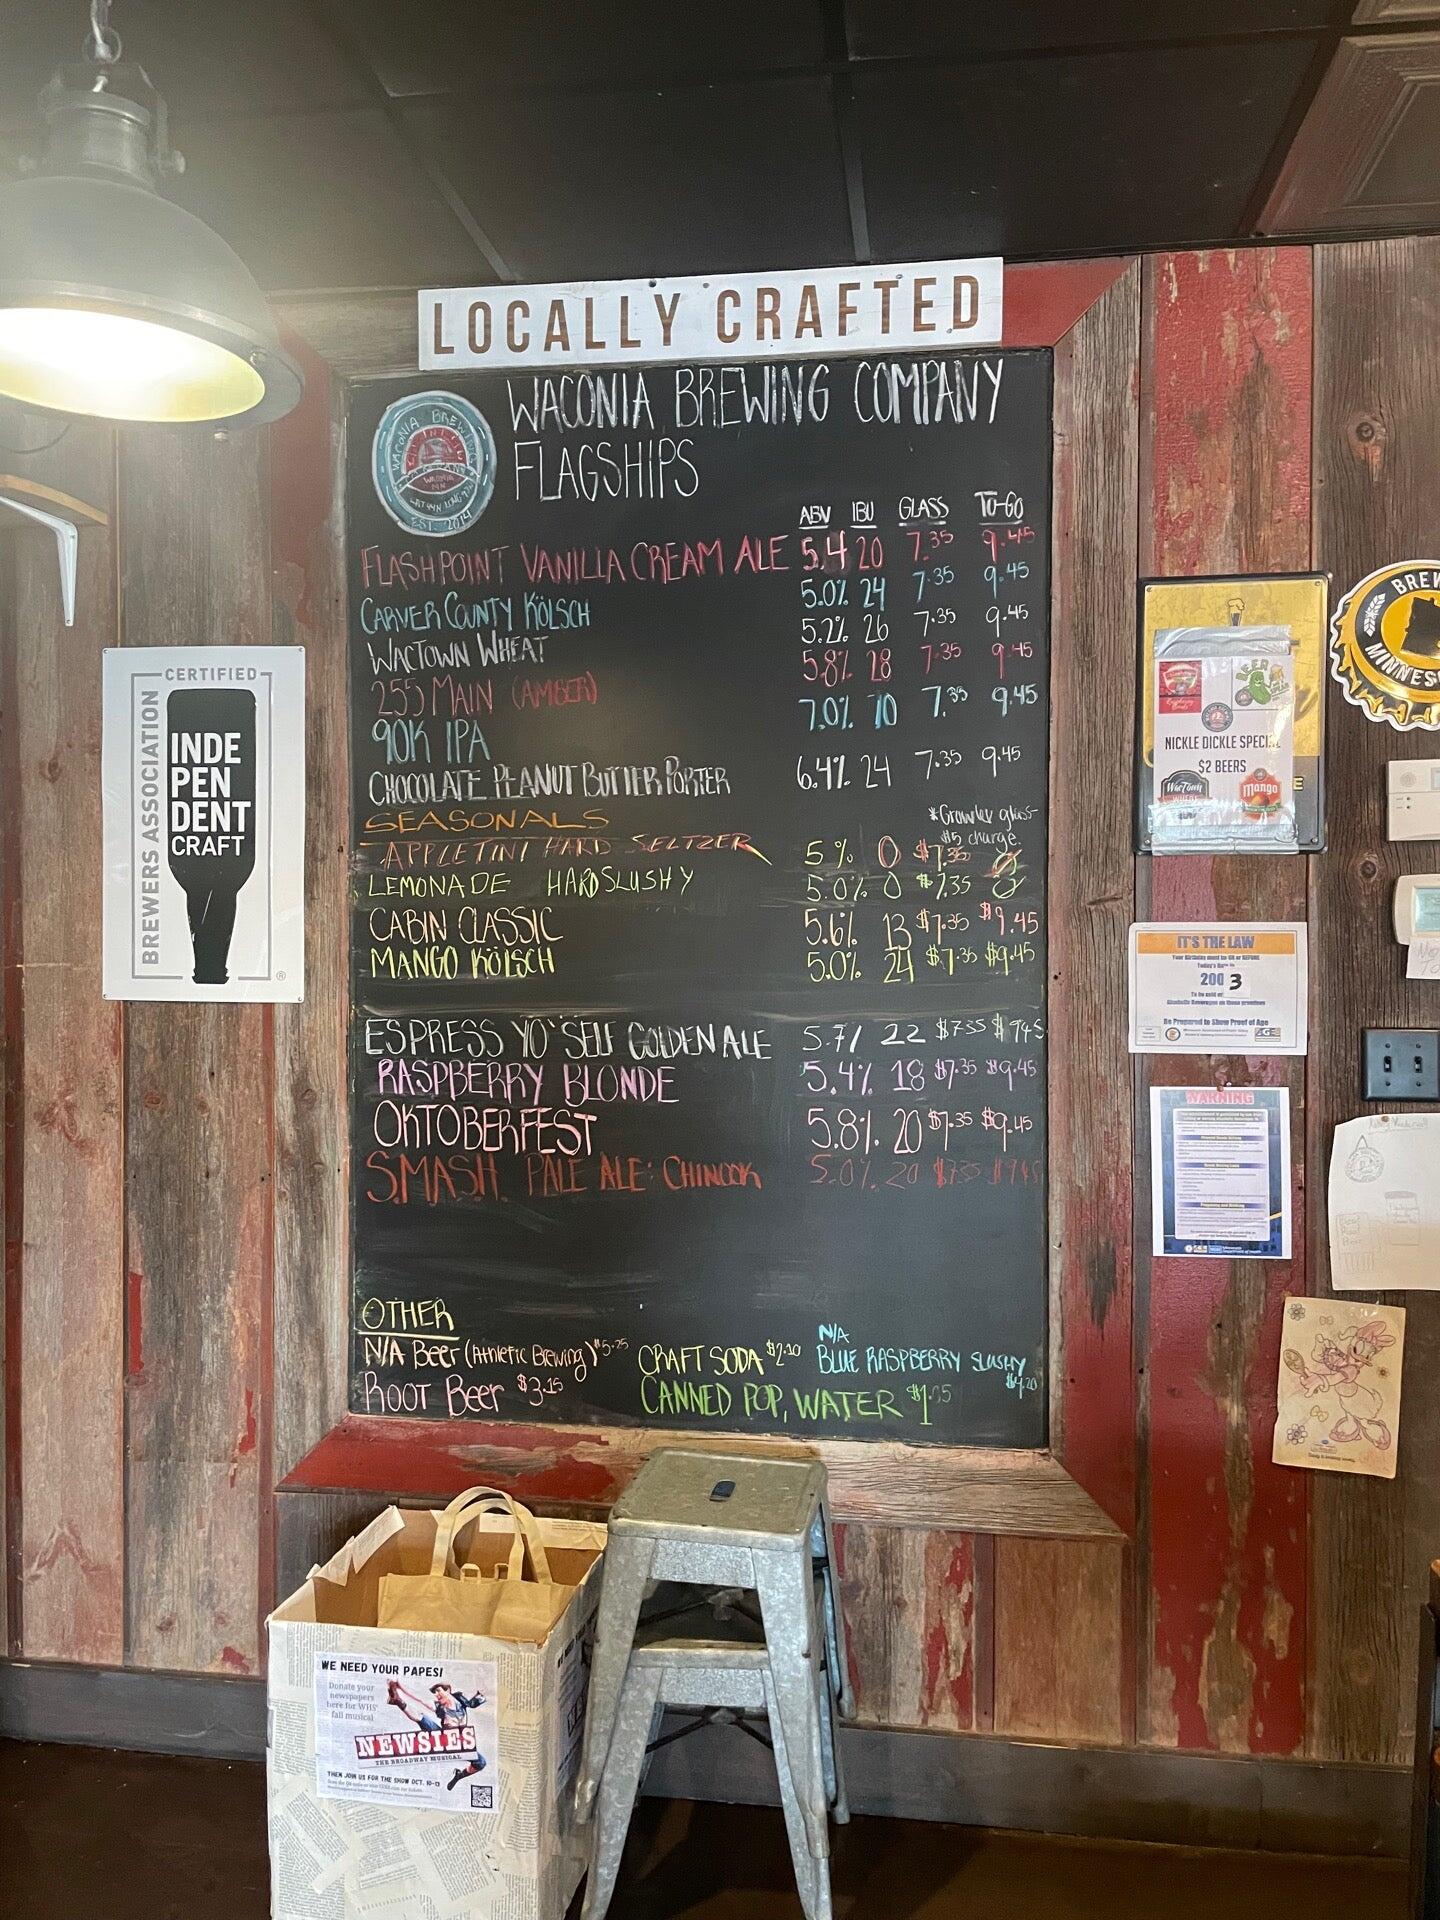 LOCALLY CRAFTED
WACONIA BREWING COMPANY
FLAGSHIPS
WACONIA BREWING
WACONIA
MN
EST. 2014
ABV IBU GLASS TO-GO
FLASHPOINT VANILLA CREAM ALE 5.4 20 7.35 9.45
CARVER COUNTY KÖLSCH 5.0% 24 7.35 9.45
WACTOWN WHEAT 5.2% 26 7.35 9.45
255 MAIN (AMBER) 5.8% 28 7.35 9.45
90K IPA 7.0% 70 7.35 9.45
CHOCOLATE PEANUT BUTTER PORTER 6.4% 24 7.35 9.45
*Growler glass-
$5 charge.
SEASONALS
APPLETINI HARD SELTZER 5% 0 $7.35
LEMONADE HARD SLUSHY 5.0% 0 $7.35
CABIN CLASSIC 5.6% 13 $7.35 $9.45
MANGO KÖLSCH 5.0% 24 $7.35 $9.45
ESPRESS YO'SELF GOLDEN ALE 5.7% 22 $7.35 $9.45
RASPBERRY BLONDE 5.4% 18 $7.35 $9.45
OKTOBERFEST 5.8% 20 $7.35 $9.45
S.M.A.S.H. PALE ALE: CHINOOK 5.0% 20 $7.35 $9.45
OTHER
N/A Beer (Athletic Brewing) $5.25
ROOT BEER $3.15
CRAFT SODA $2.10
CANNED POP, WATER $1.05
N/A
BLUE RASPBERRY SLUSHY
$4.20
CERTIFIED
BREWERS ASSOCIATION
INDE
PEN
DENT
CRAFT
®
BREW
MINNESO
NICKLE DICKLE SPECIAL
$2 BEERS
WacTown
WHEAT
Mango
IT'S THE LAW
Your Birthday must be ON or BEFORE
Today's Date in
2003
Alcoholic Beverages on these premises
Be Prepared to Show Proof of Age
WARNING
WE NEED YOUR PAPES!
Donate your
newspapers
here for WHS'
fall musical
NEWSIES
THE BROADWAY MUSICAL
THEN JOIN US FOR THE SHOW OCT. 10-13